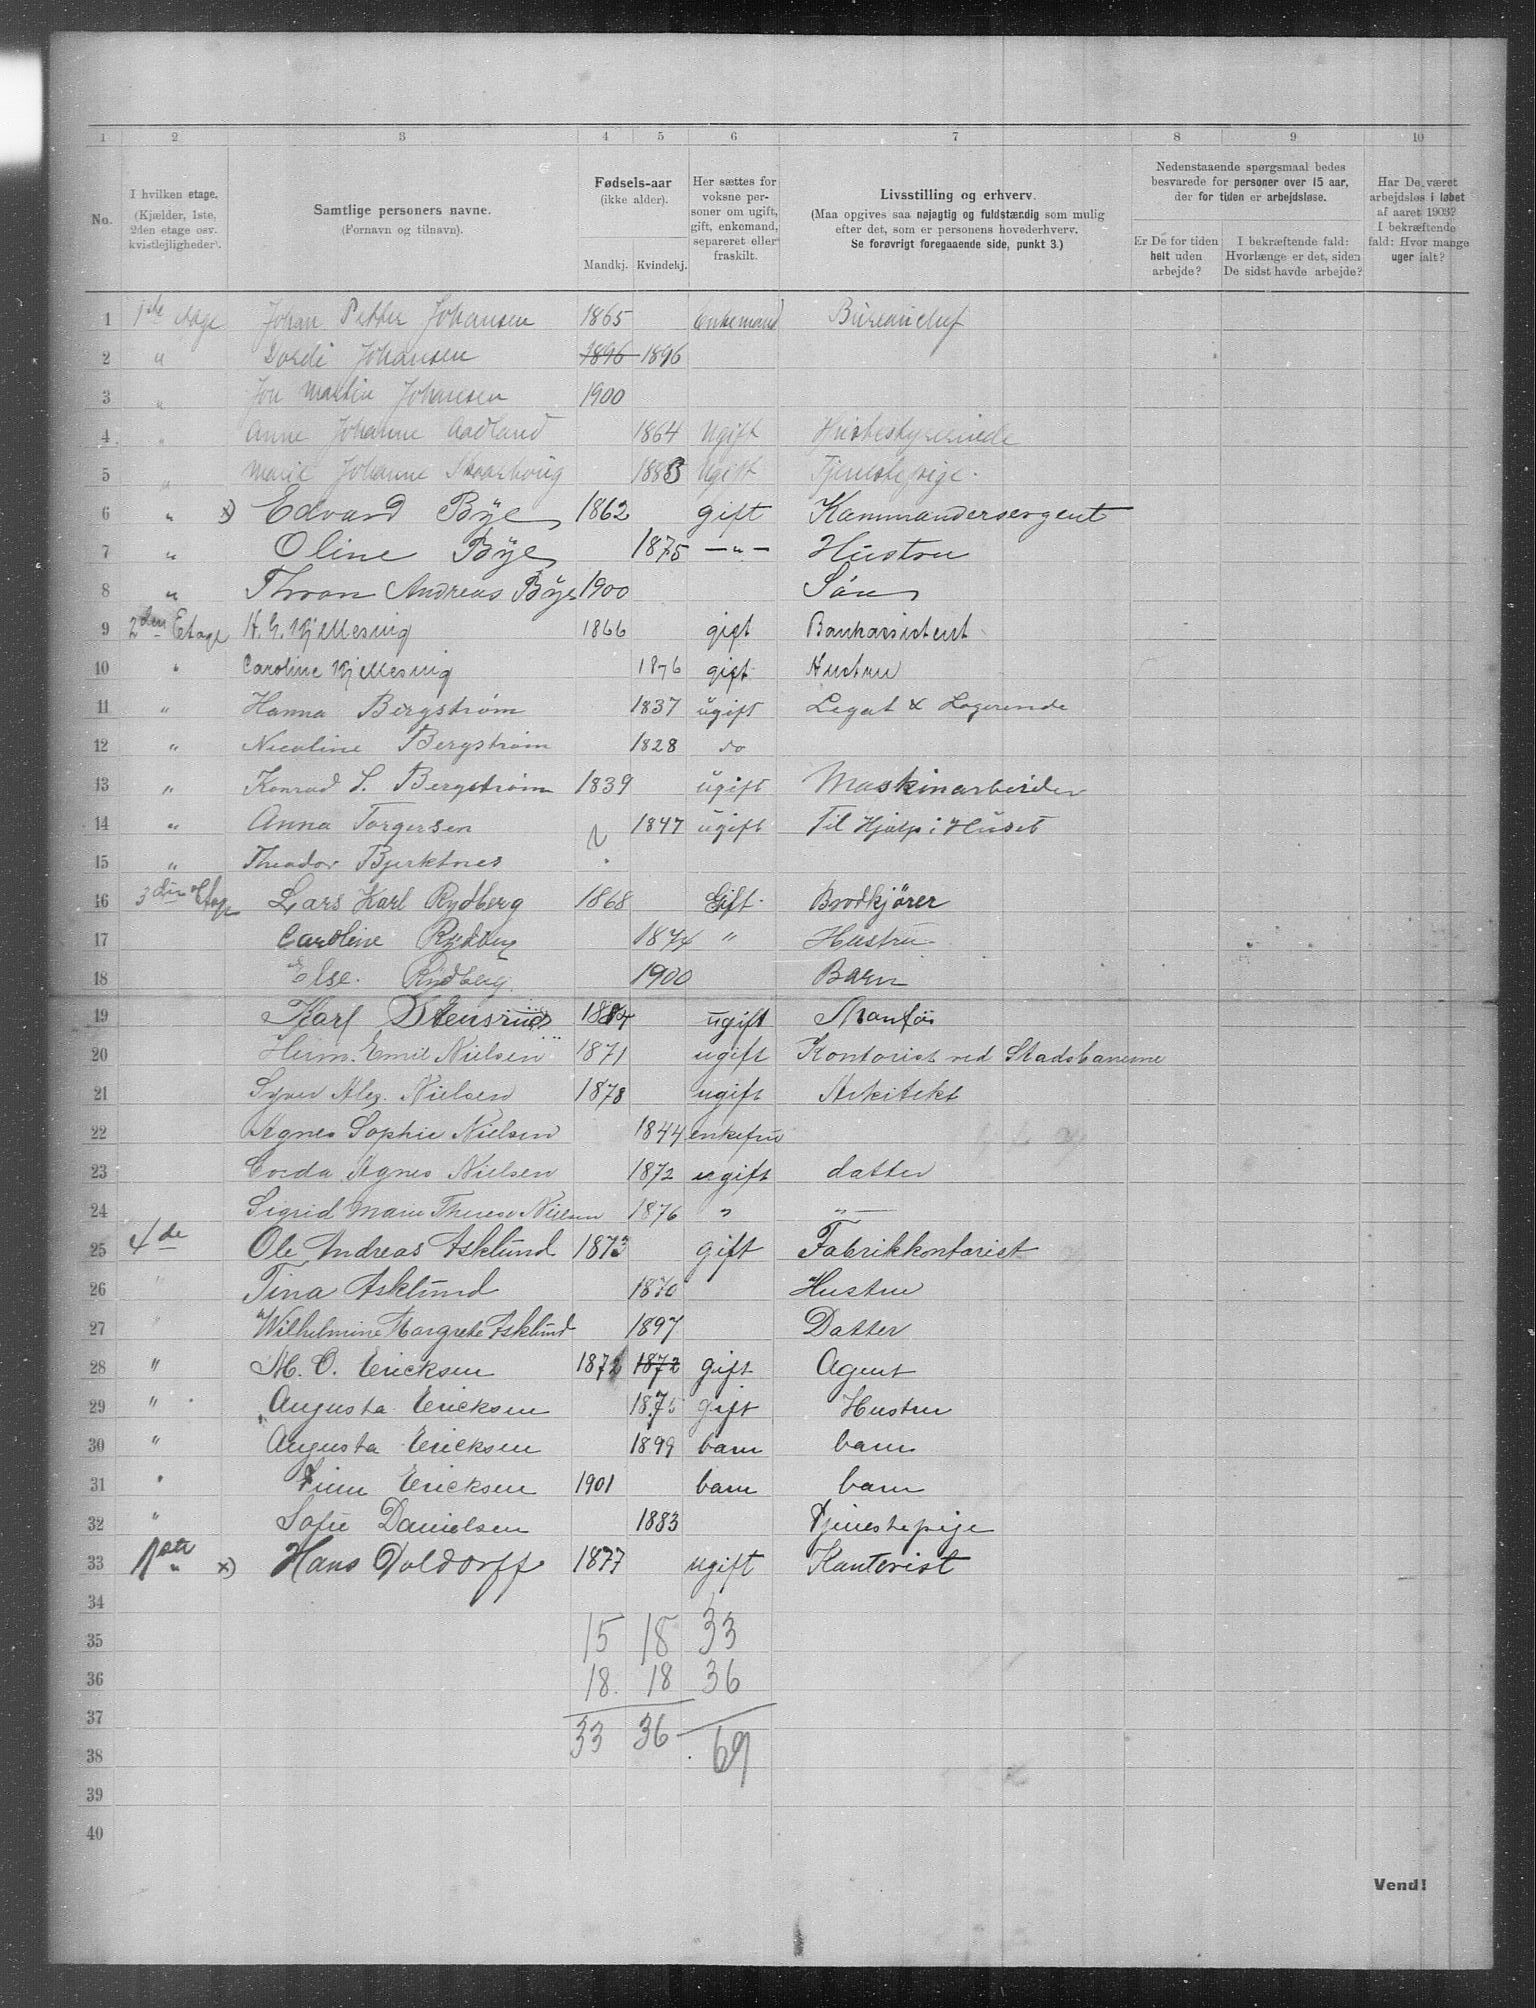 1 2 3 4 5 6 7 8 9 10
No. I hvilken etage. (Kjælder, 1ste, 2den etage osv. kvistleiligheder). Samtlige personers navne. (Fornavn og tilnavn). Fødsels-aar (ikke alder). Mandkj. Kvindekj. Her sættes for voksne personer om ugift, gift, enkemand, separeret eller fraskilt. Livsstilling og erhverv. (Maa opgives saa nøjagtig og fuldstændig som mulig efter det, som er personens hovederhverv. Se forøvrigt foregaaende side, punkt 3.) Nedenstaaende spørgsmaal bedes besvarede for personer over 15 aar, der for tiden er arbejdsløse. Er De for tiden helt uden arbejde? I bekræftende fald: Hvorlænge er det, siden De sidst havde arbejde? Har De været arbejdsløs i løbet af aaret 1903? I bekræftende fald: Hvor mange uger ialt?
1 1ste etage Johan Petter Johansen 1865 Enkemand Bureauchef
2 " Dordi Johansen 1896 1896
3 " Jon Martin Johansen 1900
4 " Anne Johanne Aadland 1864 Ugift Husbestyrerinde
5 " Marie Johanne 1883 Ugift Tjenestepige.
6 " x) Edvard Bye 1862 gift Kommandersergent
7 " Oline Bye 1875 —"— Hustru
8 " Thron Andreas Bye 1900 Søn
9 2den Etage H. G. Kjellesvig 1866 gift Bankassistent
10 " Caroline Kjellesvig 1876 gift Hustru
11 " Hanna Bergstrøm 1837 ugift Legat & Logerende
12 " Nicoline Bergstrøm 1828 do
13 " Konrad S. Bergstrøm 1839 ugift Maskinarbeider
14 " Anna Torgersen 1847 ugift Til Hjælp i Huset
15 " Theodor Bjerktnes
16 3die Etage Lars Karl Rydberg 1868 Gift Brodkjører
17 Caroline Rydberg 1874 " Hustru
18 Else. Rydberg 1900 Barn
19 Karl Stensrud 1884 ugift
20 Herm. Emil Nielsen 1871 ugift Kontorist ved Stadsbanerne
21 Syver Alex. Nielsen 1878 ugift Arkitekt
22 Agnes Sophie Nielsen 1844 enkefru
23 Corda Agnes Nielsen 1872 ugift datter
24 Sigrid Marie Therese Nielsen 1876 " "—
25 4de Ole Andreas Asklund 1873 gift Fabrikkontorist
26 " Tina Asklund 1870 Hustru
27 " Wilhelmine Margrete Asklund 1897 Datter
28 " M. O. Ericksen 1872 1872 gift Agent
29 " Augusta Ericksen 1875 gift Hustru
30 " Augusta Ericksen 1899 barn barn
31 " Finn Ericksen 1901 barn barn
32 " Sofie Danielsen 1883 Tjenestepige
33 1ste " x) Hans Doldorff 1877 ugift Kontorist
34
35 15 18 33
36 18. 18 36
37 33 36
38 69
39
40
Vend!